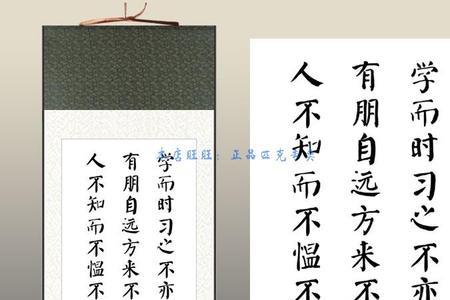 学而时习之不亦
有朋自远方来不
人不知而不愠不
学而时习之不亦
有朋自远方来不
人不知而不愠不
本店旺旺：正品匹克专卖